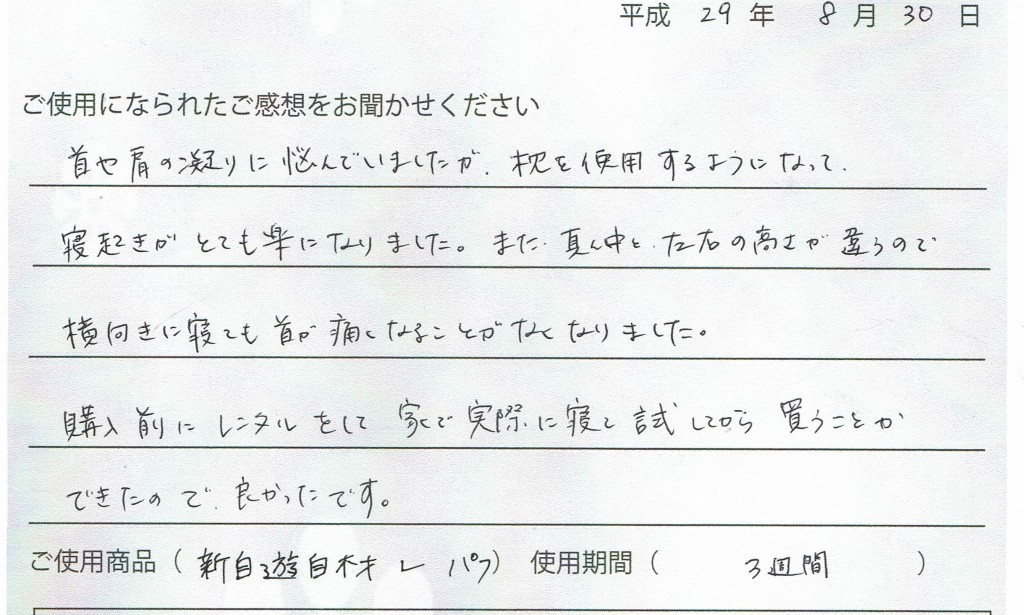 平成 29 年 8 月 30 日
ご使用になられたご感想をお聞かせください
首や肩の凝りに悩んでいましたが、枕を使用するようになって、
寝起きがとても楽になりました。また、真ん中と、左右の高さが違うので
横向きに寝ても首が痛くなることがなくなりました。
購入前にレンタルをして家で実際に寝て試してから買うことが
できたので、良かったです。
ご使用商品（新自遊自在 L パフ） 使用期間（ 3週間 ）